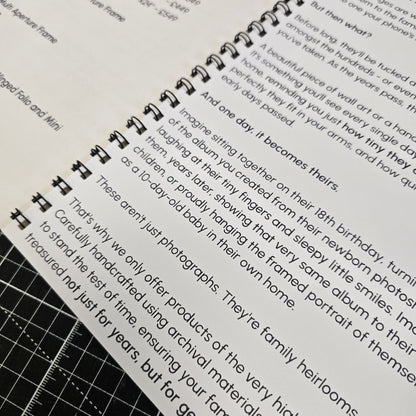 Multi Aperture Frame
£849
£24" - £549
Aperture Frame
Folio and Mini
But then what?
Before long, they'll be tucked
amongst the hundreds - or even
you've taken. As the years pass,
A beautiful piece of wall art or a
It's something you'll see every single day
home, reminding you just how tiny they
perfectly they fit in your arms, and how
early days passed.
And one day, it becomes theirs.
Imagine sitting together on their 18th birthday,
of the album you created from their newborn
laughing at their tiny fingers and sleepy little smiles.
them, years later, showing that very same album to their
children, or proudly hanging the framed portrait of
as a 10-day-old baby in their own home.
These aren't just photographs. They're family heirlooms
That's why we only offer products of the very
Carefully handcrafted using archival
to stand the test of time, ensuring your
treasured not just for years, but for